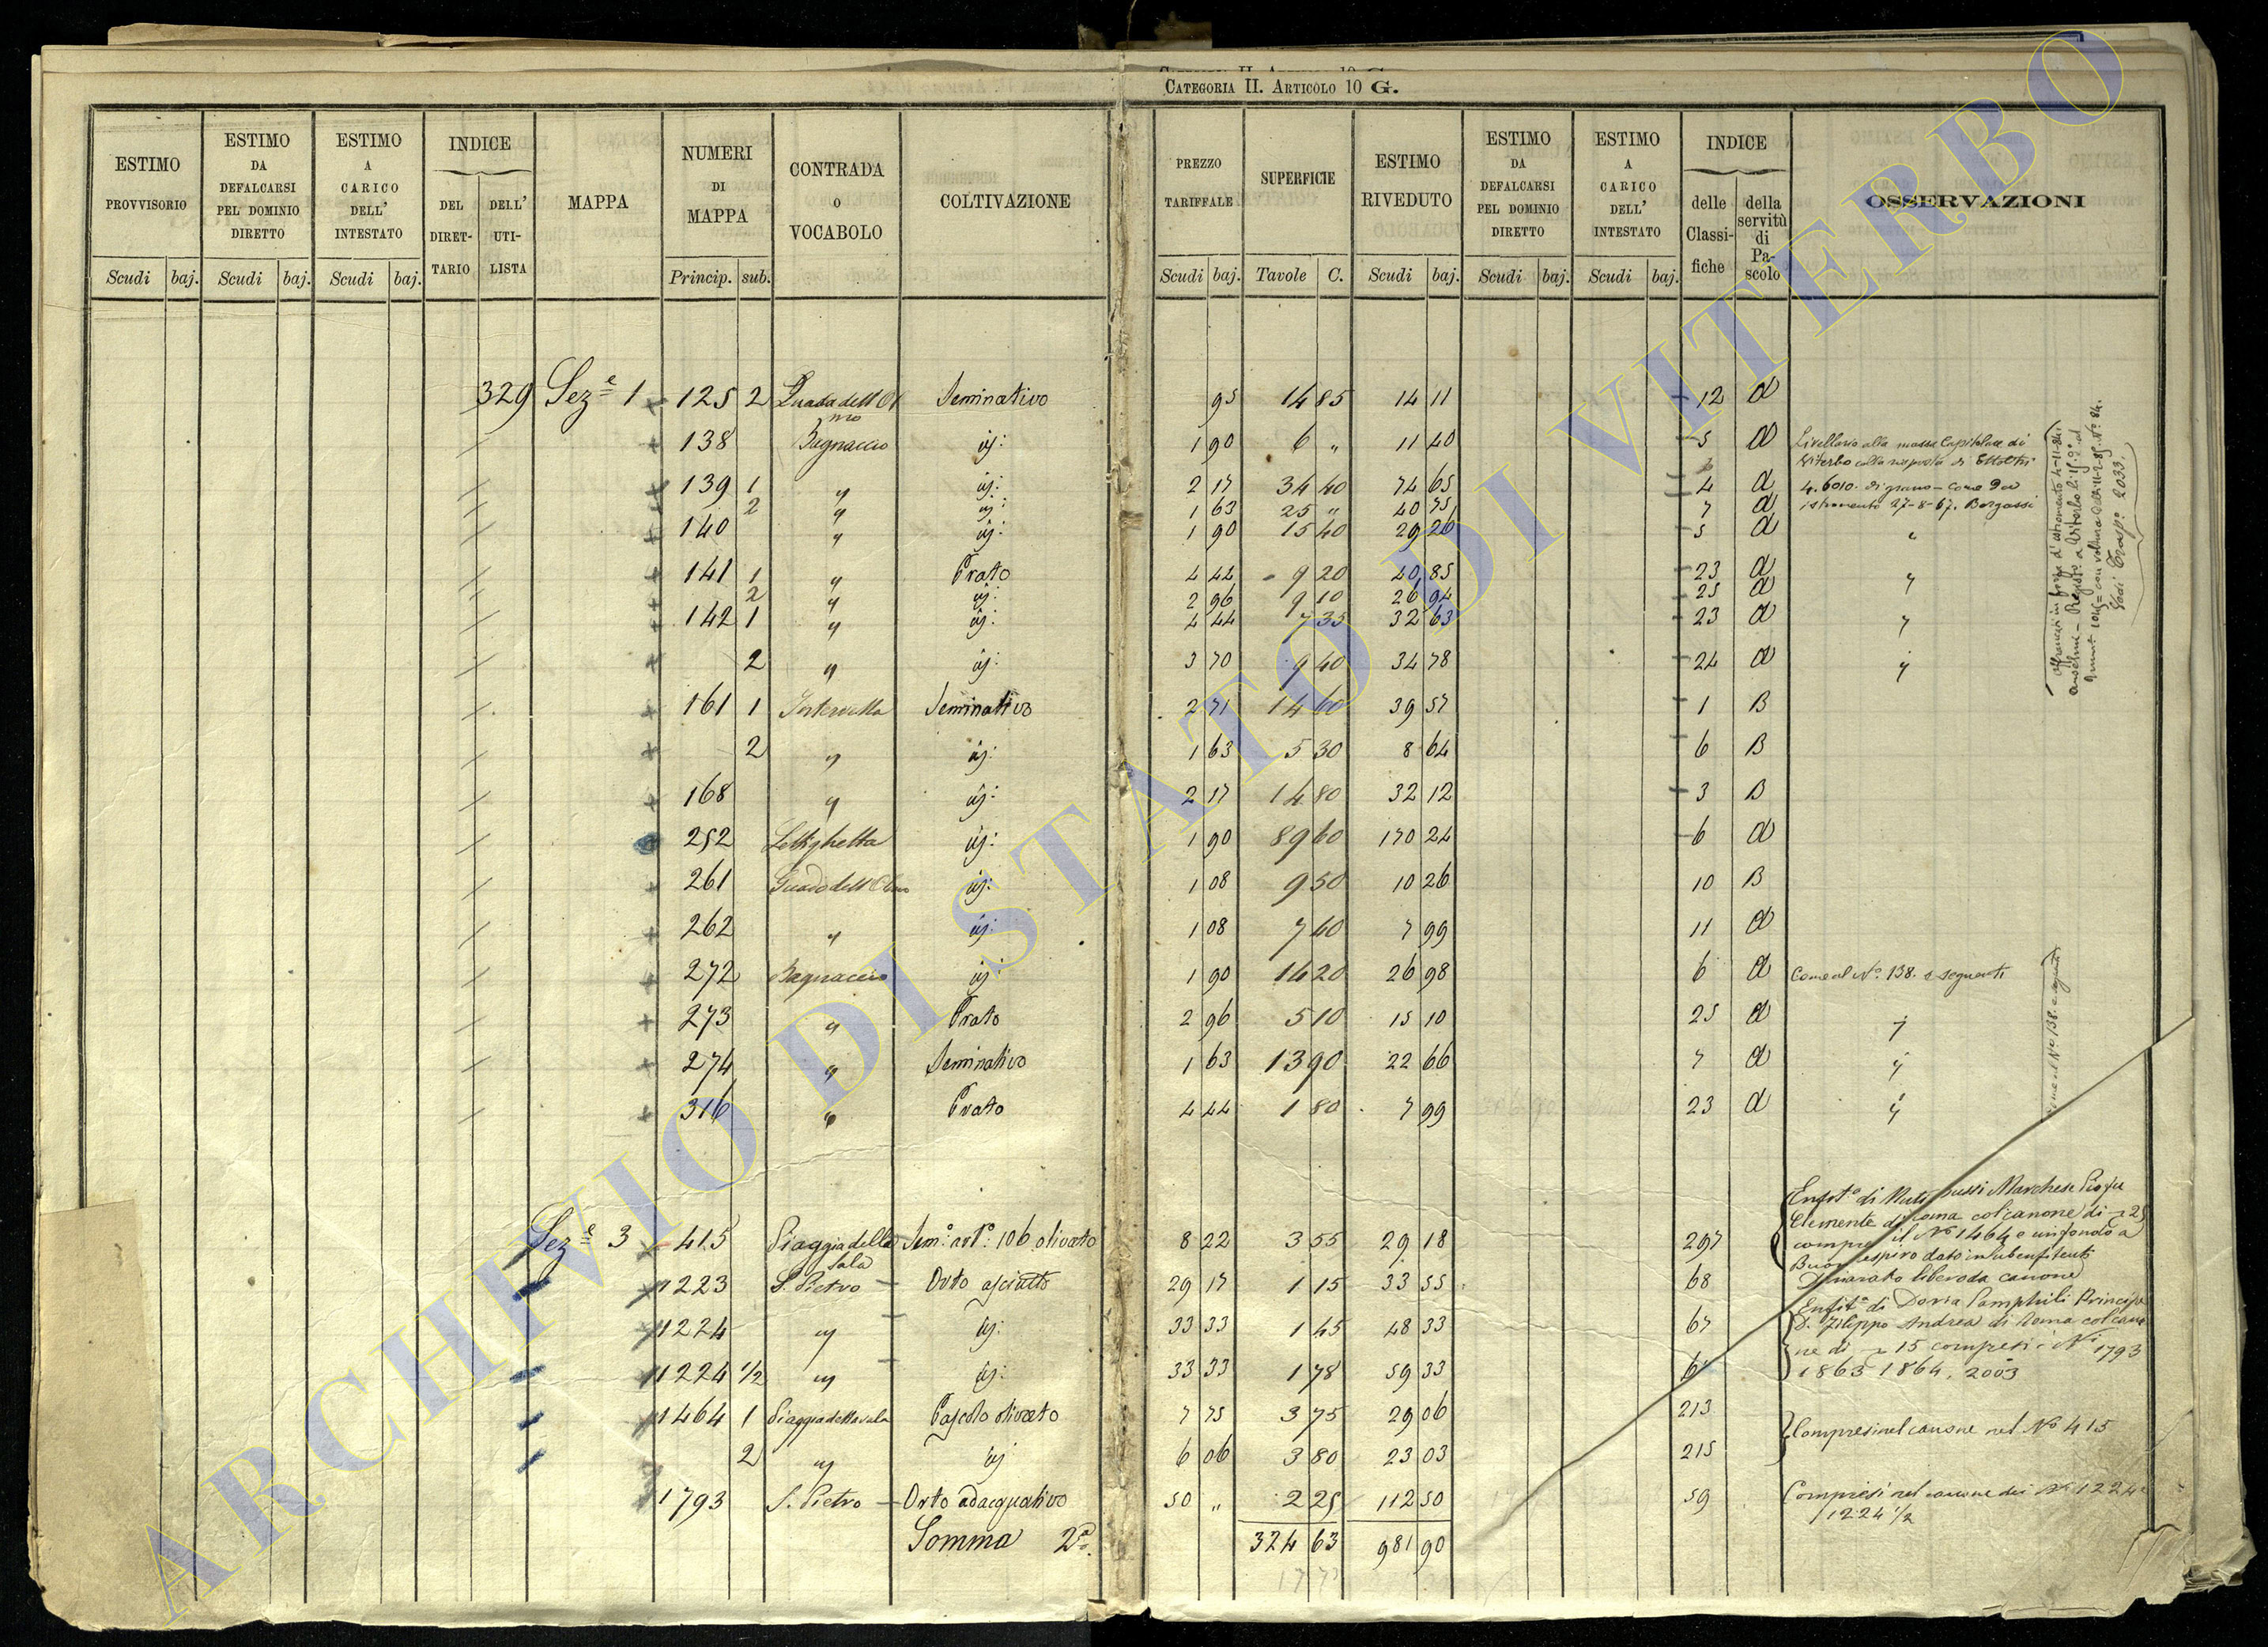 CATEGORIA II. ARTICOLO 10 G.
ESTIMO PROVVISORIO Scudi baj. ESTIMO DA DEFALCARSI PEL DOMINIO DIRETTO Scudi baj. ESTIMO A CARICO DELL' INTESTATO Scudi baj. INDICE DEL DIRET- TARIO DELL' UTI- LISTA MAPPA NUMERI DI MAPPA Princip. sub. CONTRADA O VOCABOLO COLTIVAZIONE PREZZO TARIFFALE Scudi baj. SUPERFICIE Tavole C. ESTIMO RIVEDUTO Scudi baj. ESTIMO DA DEFALCARSI PEL DOMINIO DIRETTO Scudi baj. ESTIMO A CARICO DELL' INTESTATO Scudi baj. INDICE delle Classi- fiche della servitù di Pa- scolo OSSERVAZIONI
329 Seze 1 125 2 dell'Ol mo Seminativo 95 14 85 14 11 12 a
138 Bagnaccio id: 1 90 6 " 11 40 5 a Livellario alla massa Capitolare di Viterbo colla risposta di Ettolitri
139 1 " id: 2 17 34 40 74 65 4 a 4.6010. di grano - come da
2 " id: 1 63 25 " 40 75 7 a istromento 27-8-67. Borgassi
140 " id: 1 90 15 40 29 26 5 a "
141 1 " Prato 4 44 9 20 40 85 23 a "
2 " id: 2 96 9 10 26 94 25 a
142 1 " id: 4 44 7 35 32 63 23 a "
2 " id: 3 70 9 40 34 78 24 a "
161 1 Seminativo 2 71 14 60 39 57 1 B
2 " id: 1 63 5 30 8 64 6 B
168 " id: 2 17 14 80 32 12 3 B
252 Lettighetta id: 1 90 89 60 170 24 6 a
261 Guado dell'Olmo id: 1 08 9 50 10 26 10 B
262 " id: 1 08 7 40 7 99 11 a
272 Bagnaccio id: 1 90 14 20 26 98 6 a Come al No. 138. e seguenti
273 " Prato 2 96 5 10 15 10 25 a "
274 " Seminativo 1 63 13 90 22 66 7 a "
316 " Prato 4 44 1 80 7 99 23 a "
Come al No 138. e seguenti
Seze 3 415 Piaggia della Sala Sem: art: 106 olivato 8 22 3 55 29 18 297
Enfit. di Muti Bussi Marchese Pio fu
Clemente di Roma col canone di 25
compreso il No 1464 e un fondo a
dato in subenfiteusi
1223 S. Pietro Orto asciutto 29 17 1 15 33 55 68 Dichiarato libero da canone
1224 " id: 33 33 1 45 48 33 67
1224 1/2 " id: 33 33 1 78 59 33
Enfit. di Doria Pamphili Principe
D. Filippo Andrea di Roma col cano
ne di 15 compresi i Ni 1793
1863 1864, 2003
1464 1 Piaggia della Sala Pascolo olivato 7 75 3 75 29 06 213 Compresi nel canone nel No 415
2 " id 6 06 3 80 23 03 215
1793 S. Pietro Orto adacquativo 50 " 2 25 112 50 59 Compresi nel canone dei Ni 1224
1224 1/2
Somma 2a. 324 63 981 90
ARCHIVIO DI STATO DI VITERBO